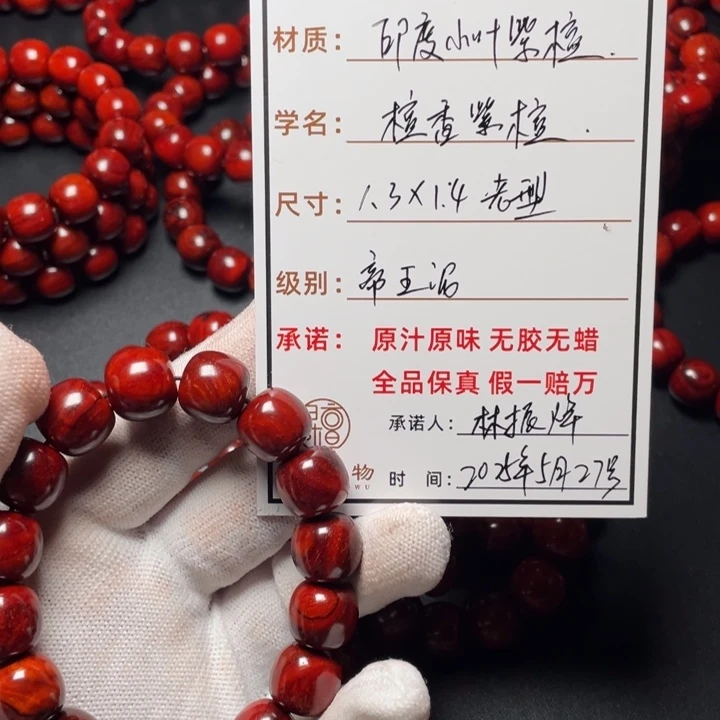 材质：印度小叶紫檀.
学名：檀香紫檀.
尺寸：1.3×1.4 老型
级别：帝王泥
承诺：原汁原味 无胶无蜡
全品保真 假一赔万
承诺人：林振烽
物
WU
时 间：2025年5月27号